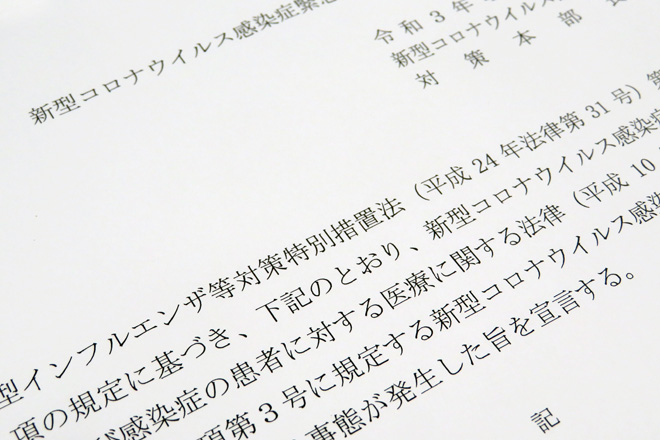 新型コロナウイルス感染症緊急
令和３年
新型コロナウイルス
対策本部長
型インフルエンザ等対策特別措置法（平成24年法律第31号）第
項の規定に基づき、下記のとおり、新型コロナウイルス感染症
び感染症の患者に対する医療に関する法律（平成10
項第３号に規定する新型コロナウイルス感染
事態が発生した旨を宣言する。
記